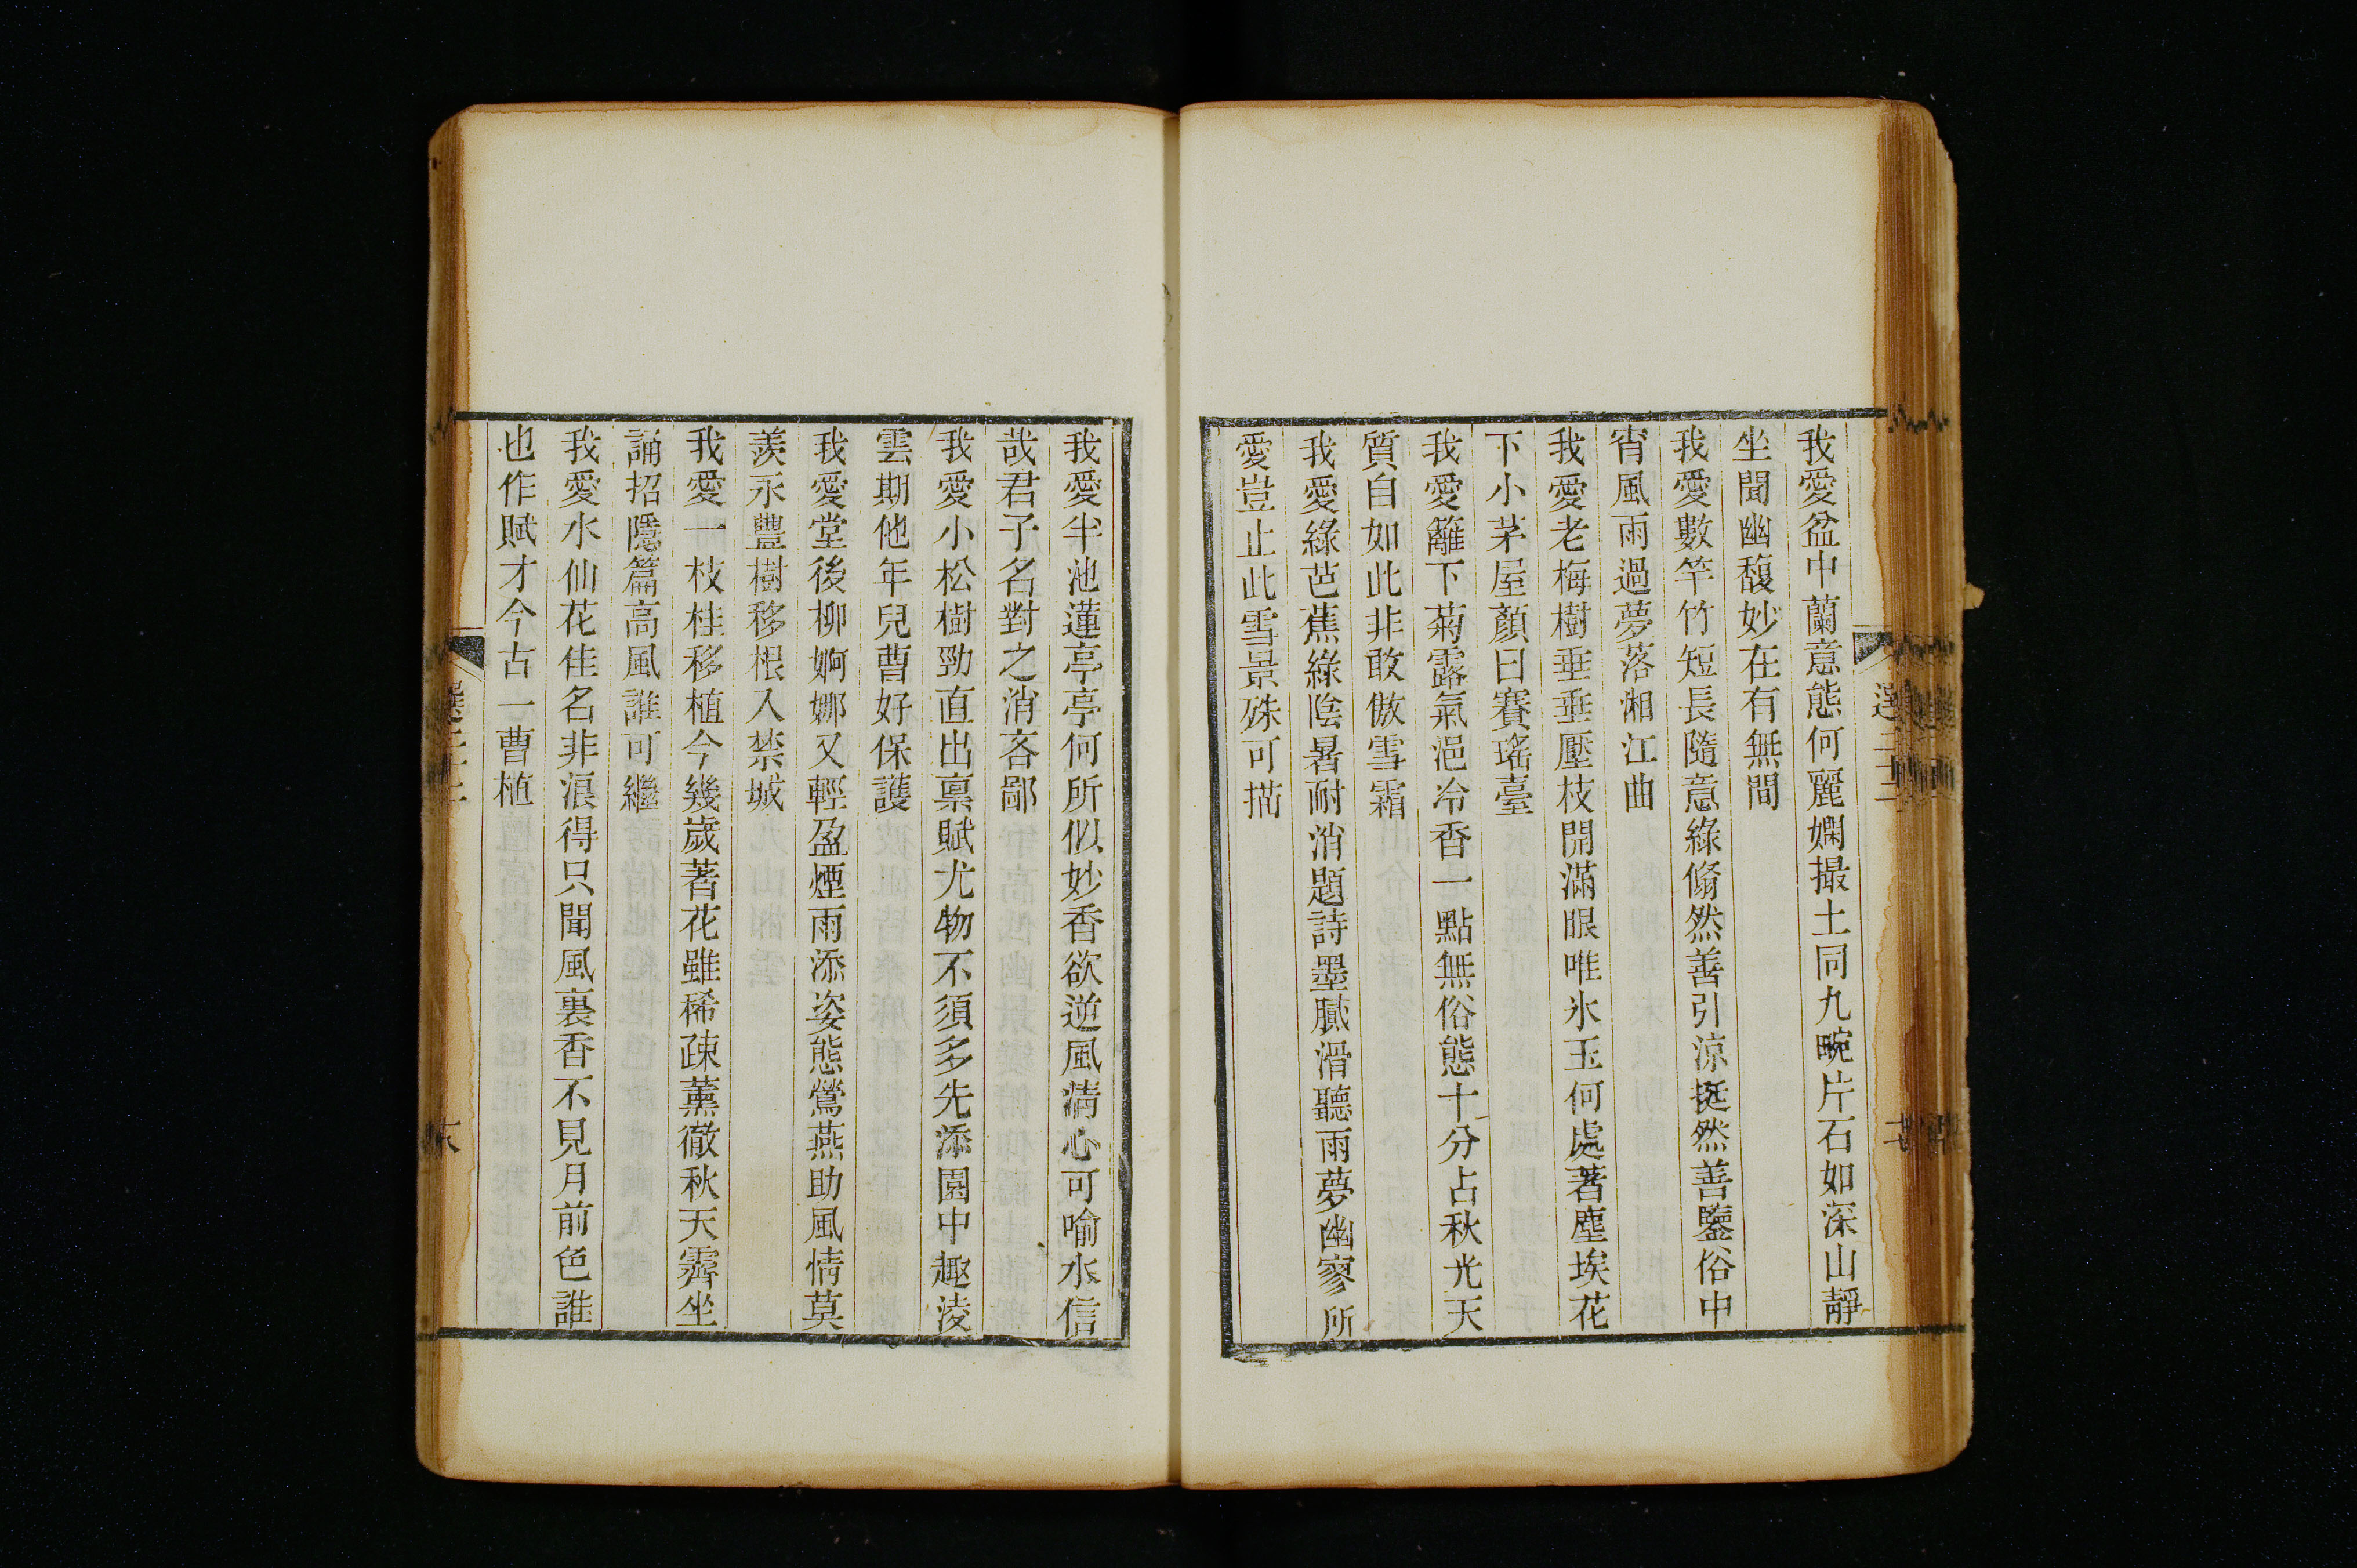 我愛盆中蘭意態何麗嫻撮土同九畹片石如深山靜
坐聞幽馥妙在有無間
我愛數竿竹短長隨意綠翛然善引涼挺然善鑒俗中
宵風雨過夢落湘江曲
我愛老梅樹垂垂壓枝開滿眼唯氷玉何處著塵埃花
下小茅屋顏曰賽瑤臺
我愛籬下菊露氣浥冷香一點無俗態十分占秋光天
質自如此非敢傲雪霜
我愛綠芭蕉綠陰暑耐消題詩墨膩滑聽雨夢幽寥所
愛豈止此雪景殊可描
我愛半池蓮亭亭何所似妙香欲逆風淸心可喻水信
哉君子名對之消吝鄙
我愛小松樹勁直出禀賦尤物不須多先添園中趣淩
雲期他年兒曹好保護
我愛堂後柳婀娜又輕盈煙雨添姿態鶯燕助風情莫
羨永豐樹移根入禁城
我愛一枝桂移植今幾歲著花雖稀疎薰徹秋天霽坐
誦招隱篇高風誰可繼
我愛水仙花佳名非浪得只聞風裏香不見月前色誰
也作賦才今古一曹植